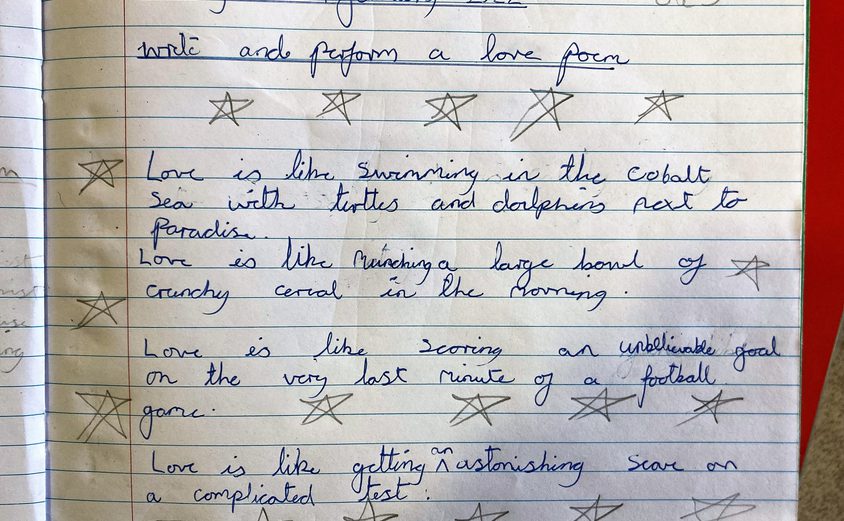 write and perform a love poem
Love is like swimming in the cobalt
sea with turtles and dolphins next to
paradise.
Love is like munching a large bowl of
crunchy cereal in the morning.
Love is like scoring an unbelievable goal
on the very last minute of a football
game.
Love is like getting an astonishing score on
a complicated test.